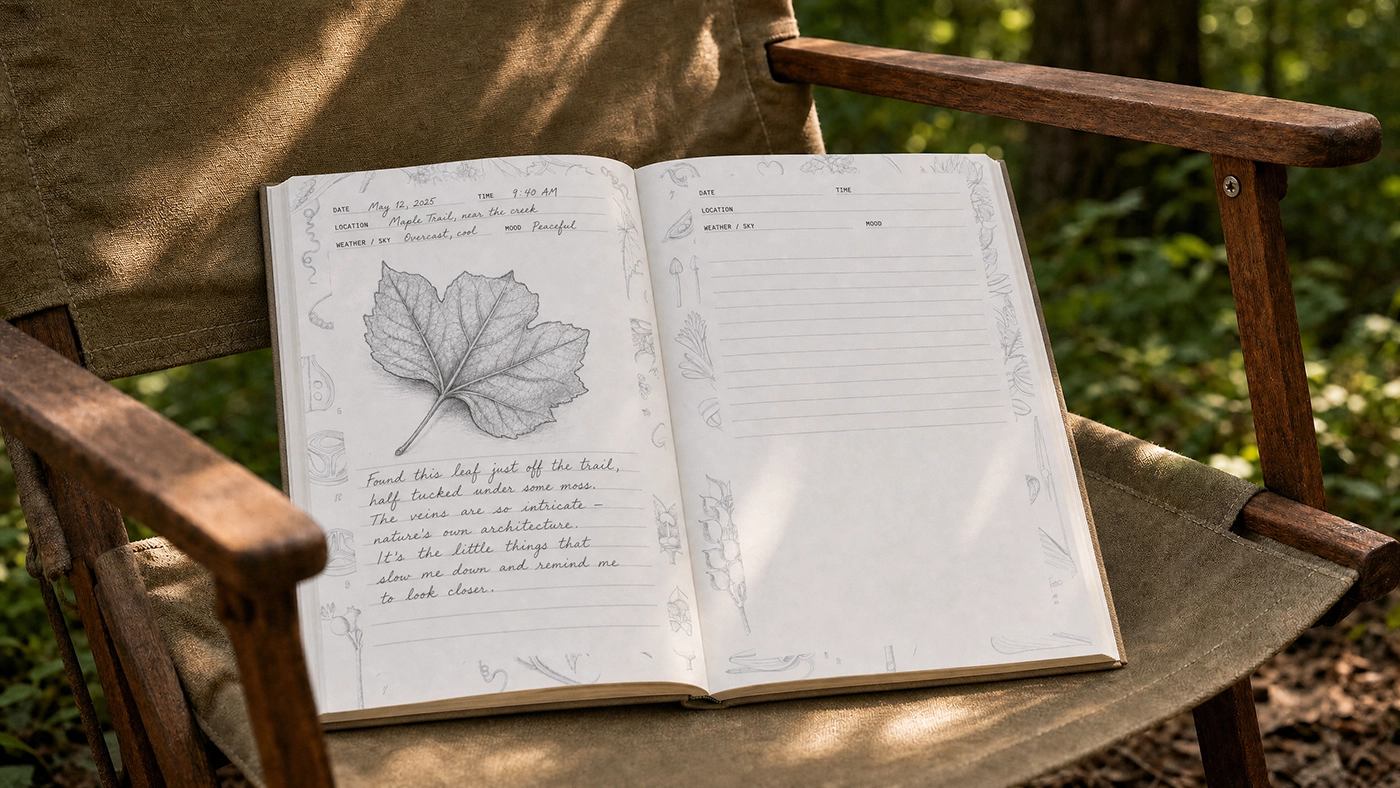 DATE May 12, 2025 TIME 9:40 AM
LOCATION Maple Trail, near the creek
WEATHER / SKY Overcast, cool MOOD Peaceful
Found this leaf just off the trail,
half tucked under some moss.
The veins are so intricate –
nature's own architecture.
It's the little things that
slow me down and remind me
to look closer.
DATE TIME
LOCATION
WEATHER / SKY MOOD